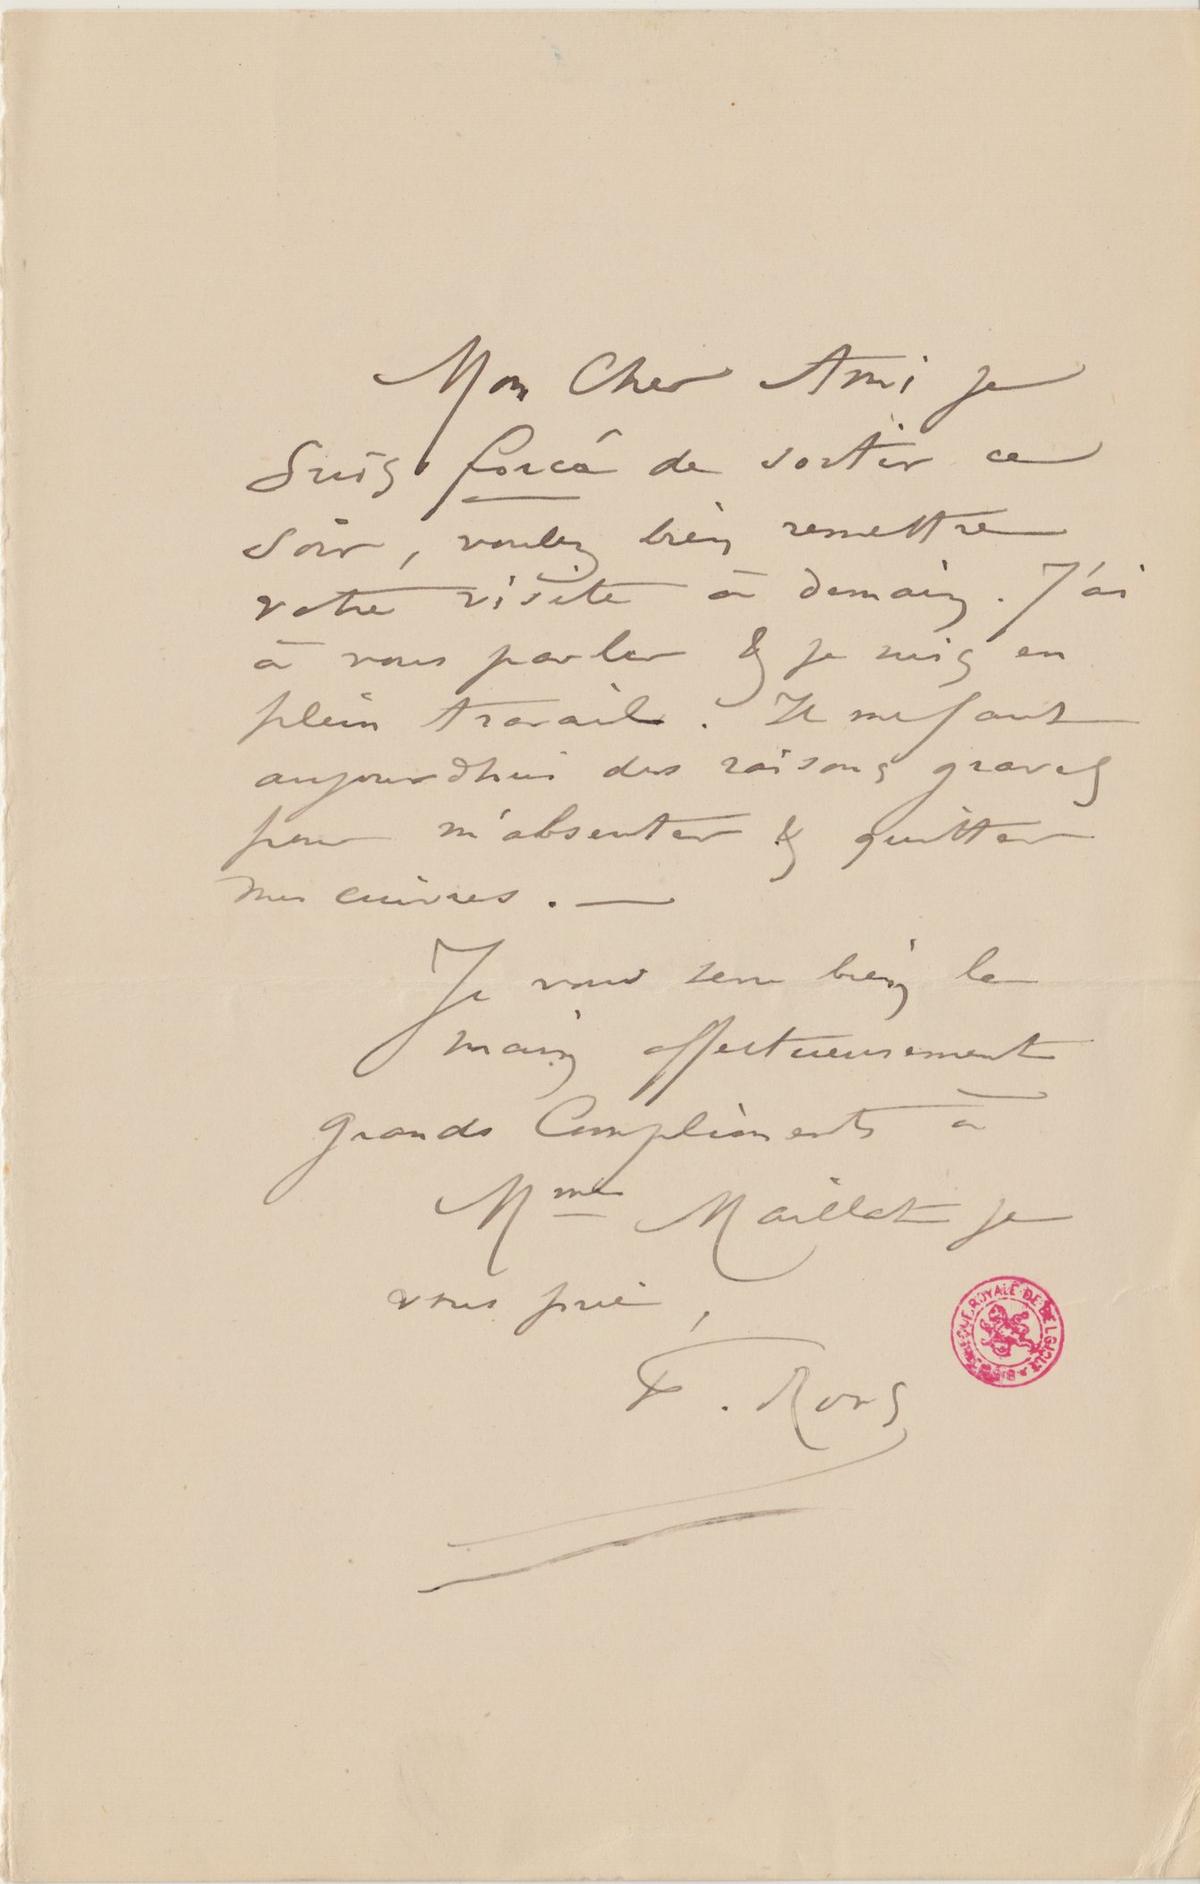 Mon Cher Ami je
suis forcé de sortir ce
soir, voulez bien remettre
votre visite à demain. J'ai
à vous parler & je suis en
plein travail. Il me faut
aujourd'hui des raisons graves
pour m'absenter & quitter
mes cuivres. —
Je vous serre bien la
main affectueusement
Grands Compliments à
Mme Maillet je
vous prie,
F. Rops
BIBLIOTHEQUE ROYALE DE BELGIQUE